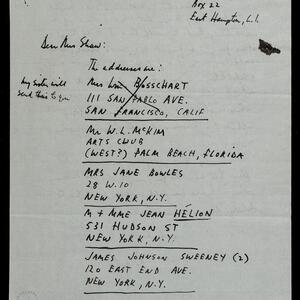 Box 22
East Hampton, L.I.
Dear Mrs Shaw:
The addresses are:
my sister will
send this to you
Mrs BOSSCHART
111 SAN PABLO AVE.
SAN FRANCISCO, CALIF
Mr W.L. McKIM
ARTS CLUB
(WEST?) PALM BEACH, FLORIDA
MRS JANE BOWLES
28 W. 10
NEW YORK, N.Y.
M + MME JEAN HÉLION
531 HUDSON ST
NEW YORK, N.Y.
JAMES JOHNSON SWEENEY (2)
120 EAST END AVE.
NEW YORK, N.Y.